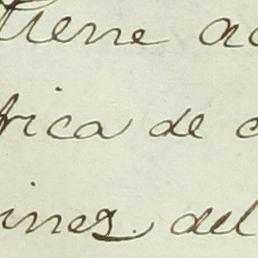 tiene ac
rica de c
ines. del